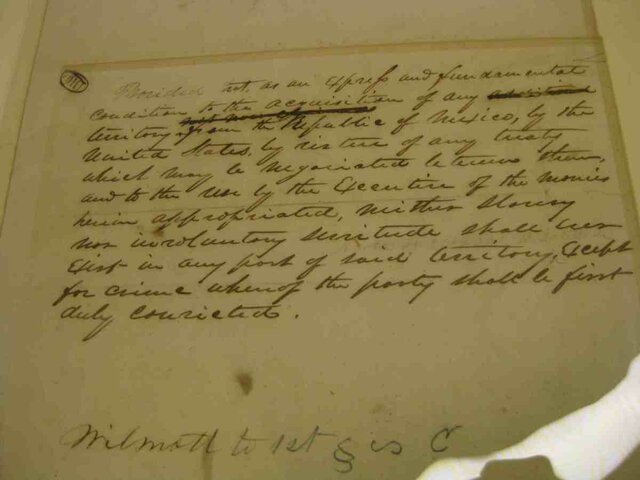 Provided, That, as an express and fundamental
condition to the acquisition of any
territory from the Republic of Mexico, by the
United States, by virtue of any treaty
which may be negociated between them,
and to the use by the Executive of the monies
herein appropriated, neither slavery
nor involuntary servitude shall ever
exist in any part of said territory, except
for crime whereof the party shall be first
duly convicted.
Wilmott to 1st § C